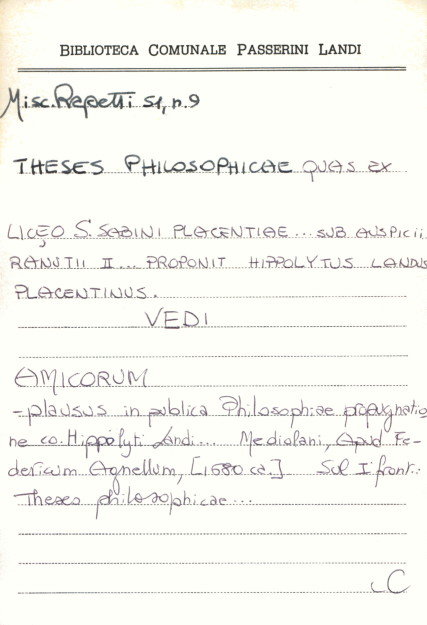 BIBLIOTECA COMUNALE PASSERINI LANDI
Misc. Repetti 51, n. 9
THESES PHILOSOPHICAE QUAS EX
LICEO S. SABINI PLACENTIAE... SUB AUSPICII
RANUTII II... PROPONIT HIPPOLYTUS LANDUS
PLACENTINUS.
VEDI
AMICORUM
-plausus in publica Philosophiae propugnatio
ne co. Hippolyti Landi... Mediolani, Apud Fe-
dericum Agnellum, [1680 ca.] Sul I front.:
Theses philosophicae...
C